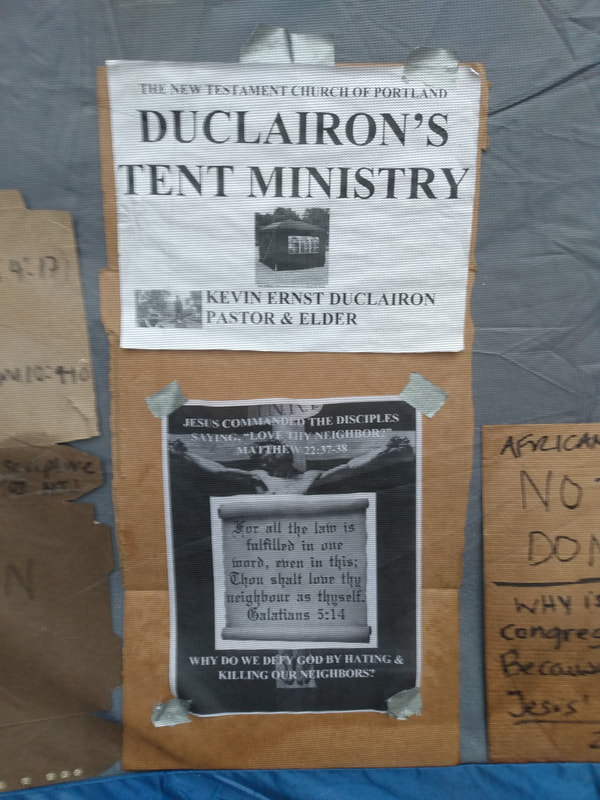 THE NEW TESTAMENT CHURCH OF PORTLAND
DUCLAIRON'S
TENT MINISTRY
KEVIN ERNST DUCLAIRON
PASTOR & ELDER
JESUS COMMANDED THE DISCIPLES
SAYING, "LOVE THY NEIGHBOR?"
MATTHEW 22:37-38
For all the law is
fulfilled in one
word, even in this;
Thou shalt love thy
neighbour as thyself.
Galatians 5:14
WHY DO WE DEFY GOD BY HATING &
KILLING OUR NEIGHBORS?
AFRICAN
NO
DON
WHY is
Congreg
Becaus
Jesus'